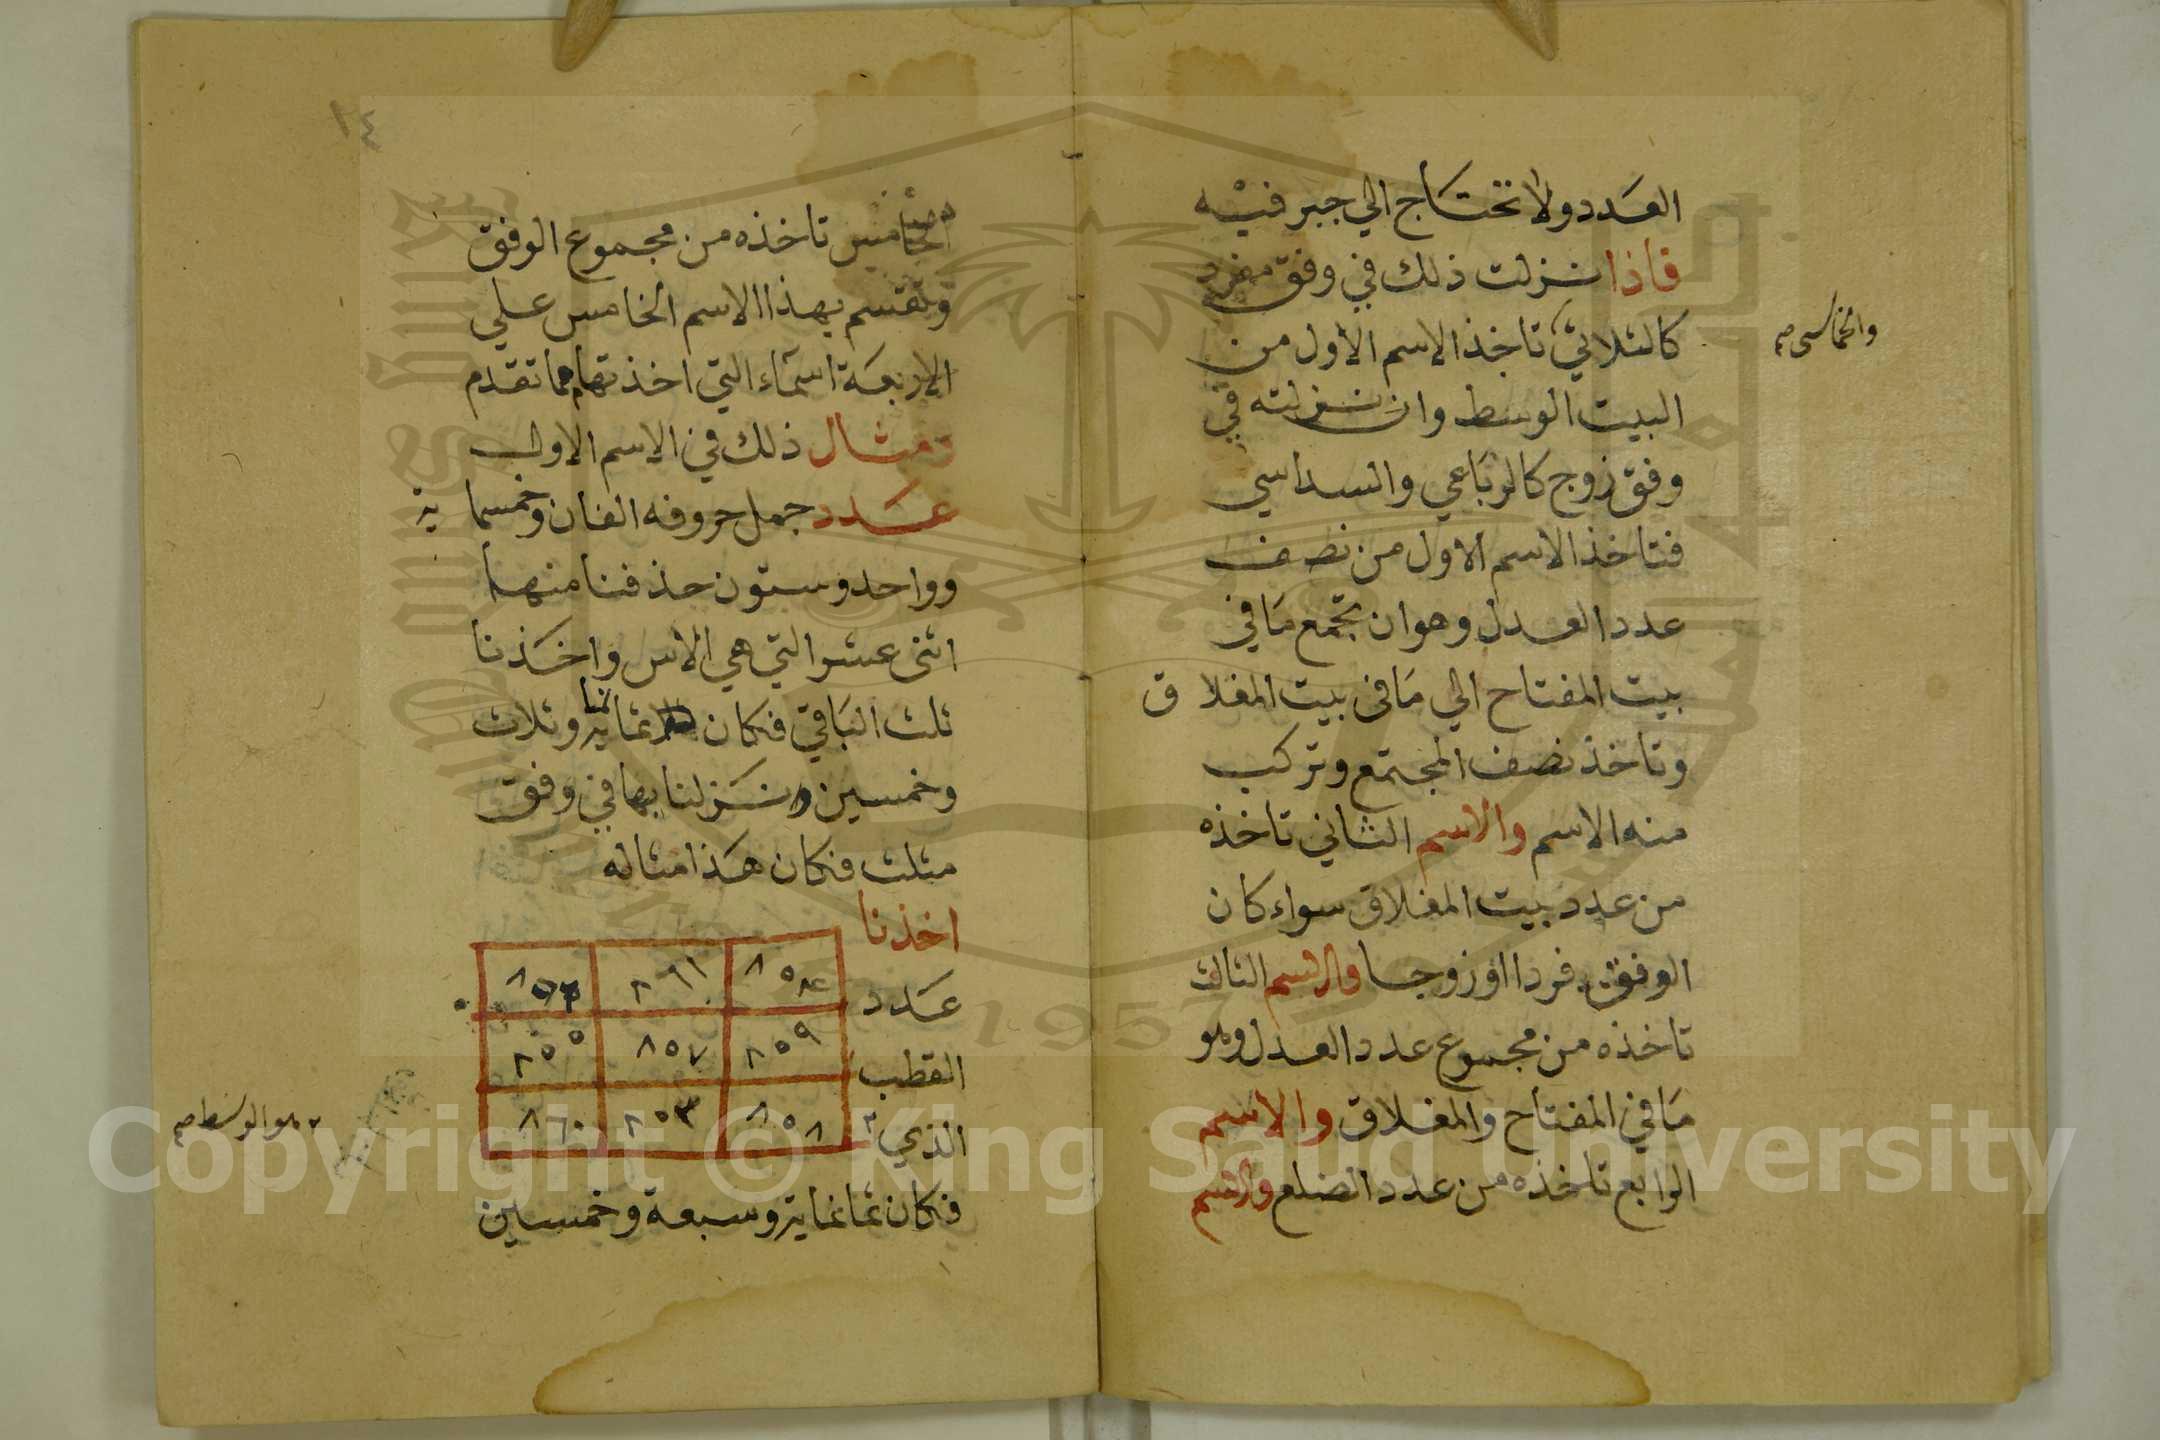 العدد ولا تحتاج الي جبر فيه
فاذا نزلت ذلك في وفق مفرد
كالثلاثي تاخذ الاسم الاول من
والخماسي صح
البيت الوسط وان نزلته في
وفق زوج كالرباعي والسداسي
فتاخذ الاسم الاول من نصف
عدد العدل وهو ان تجمع ما في
بيت المفتاح الي ما في بيت المغلاق
وتاخذ نصف المجتمع وتركب
منه الاسم والاسم الثاني تاخذه
من عدد بيت المغلاق سواء كان
الوفق فردا اوزوجا والاسم الثالث
تاخذه من مجموع عدد العدل وهو
ما في المفتاح والمغلاق والاسم
الرابع تاخذه من عدد الضلع والاسم
١٤
الخامس تاخذه من مجموع الوفق
وتقسم بهذا الاسم الخامس علي
الاربعة اسماء التي اخذتها مما تقدم
ومثال ذلك في الاسم الاول
عدد جمل حروفه الفان وخمسماية
وواحد وستون حذفنا منها
اثنى عشر التي هي الاس واخذنا
ثلث الباقي فكان ثمانماية وثلاث
وخمسين ونزلنا بها في وفق
مثلث فكان هذا مثاله
اخذنا
عدد
القطب
الذي
هو الوسط صح
٨٥٤ ٨٦١ ٨٥٦
٨٥٩ ٨٥٧ ٨٥٥
٨٥٨ ٨٥٣ ٨٦٠
فكان ثمانماية وسبعة وخمسين
1957
Copyright © King Saud University